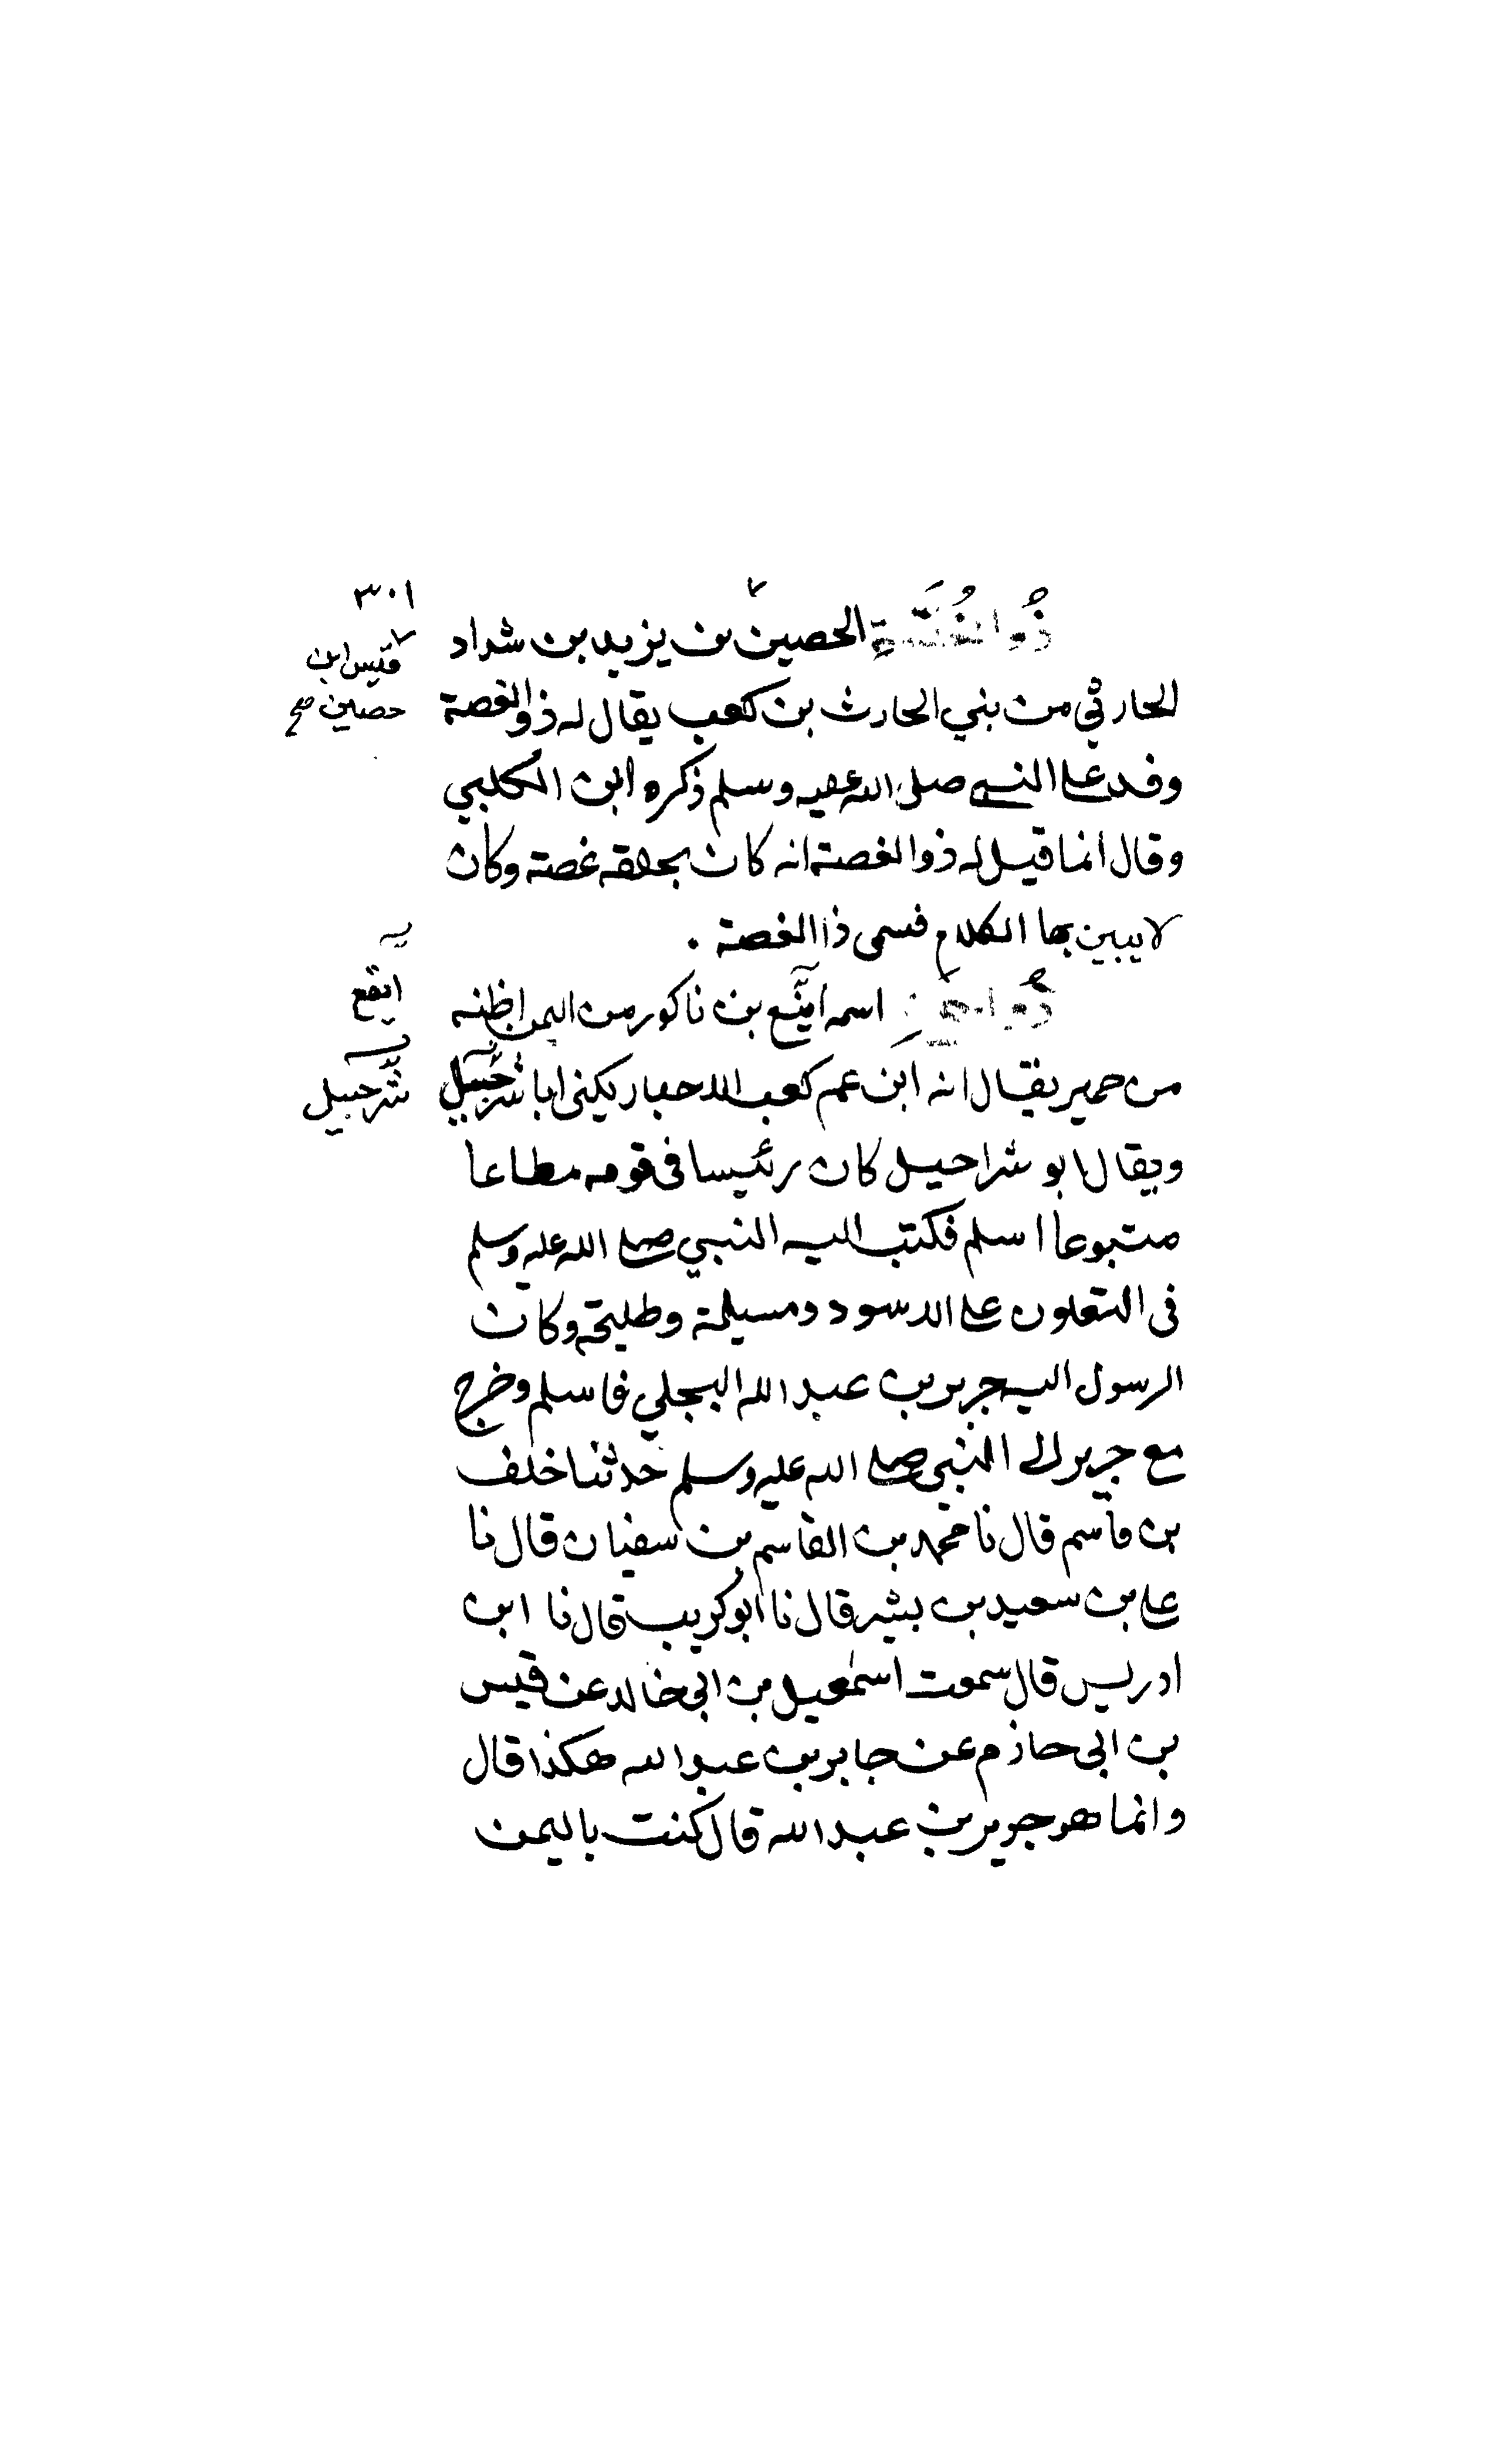 ٣٠١
ذُو الغُصَّةِ الحصين بن يزيد بن شداد
قيس ابن
حصين صح
الحارثي من بني الحارث بن كعب يقال له ذو الغصة
وفد على النبي صلى الله عليه وسلم ذكره ابن الكلبي
وقال انما قيل له ذو الغصة انه كان بحلقه غصة وكان
لا يبين بها الكلام فسمى ذا الغصة .
اسمه ايفع بن ناكور من اليمن اظنه
ايقع
من حمير يقال انه ابن عم كعب الاحبار يكنى ابا شرحبيل
شرحبيل
ويقال ابو شراحيل كان رئيسا فى قومه مطاعا
متبوعا اسلم فكتب اليه النبي صلى الله عليه وسلم
فى التعاون على الاسود ومسيلمة وطليحة وكان
الرسول اليه جرير بن عبد الله البجلي فاسلم وخرج
مع جرير الى النبي صلى الله عليه وسلم حدثنا خلف
بن قاسم قال نا محمد بن القاسم بن سفيان قال نا
على بن سعيد بن بشير قال نا ابو كريب قال نا ابن
ادريس قال سمعت اسمعيل بن ابى خالد عن قيس
بن ابى حازم عن جابر بن عبد الله هكذا قال
وانما هو جرير بن عبد الله قال كنت باليمن